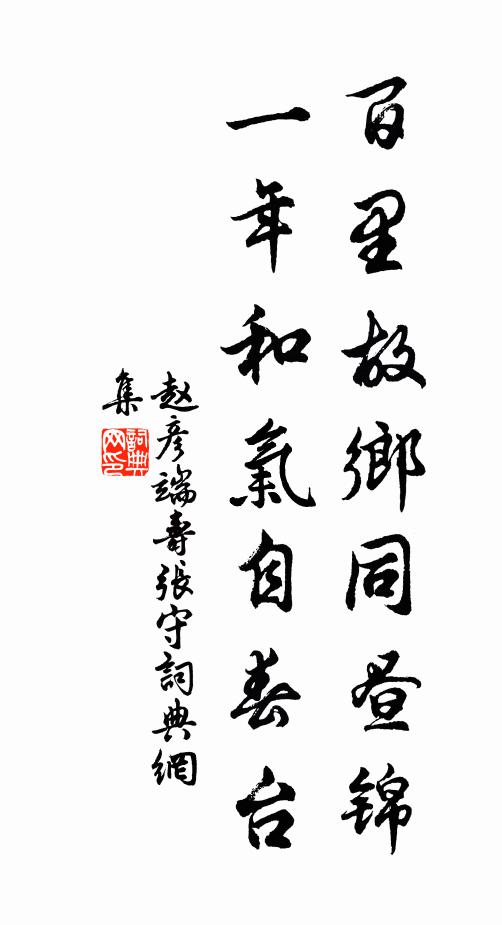 百里故鄉同昼锦
一年和氣自春台
赵彦端壽張守詞典網
集
詞典网印